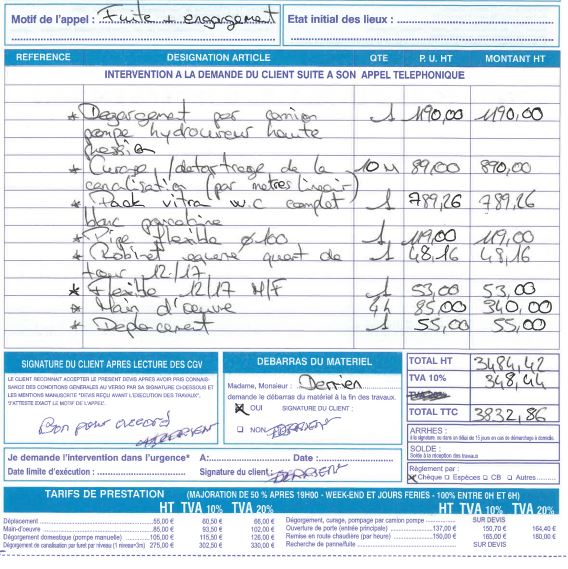 Motif de l'appel : Fuite + engorgement
Etat initial des lieux :
REFERENCE DESIGNATION ARTICLE QTE P. U. HT MONTANT HT
INTERVENTION A LA DEMANDE DU CLIENT SUITE A SON APPEL TELEPHONIQUE
* Degorgement par camion 1 1190,00 1190,00
pompe hydrocureur haute
pression
* Curage / detartrage de la 10 M 89,00 890,00
canalisation (par metres lineair)
* Pack vitra w.c complet 1 789,26 789,26
blanc porcelaine
* Pipe flexible ø 100 1 119,00 119,00
* Robinet equerre quart de 1 48,16 48,16
tour 12/17
* Flexible 12/17 M/F 1 53,00 53,00
* Main d'oeuvre 4h 85,00 340,00
* Deplacement 1 55,00 55,00
SIGNATURE DU CLIENT APRES LECTURE DES CGV
LE CLIENT RECONNAIT ACCEPTER LE PRESENT DEVIS APRES AVOIR PRIS CONNAIS-
SANCE DES CONDITIONS GENERALES AU VERSO PAR SA SIGNATURE CI-DESSOUS ET
LES MENTIONS MANUSCRITE "DEVIS REÇU AVANT L'EXECUTION DES TRAVAUX".
J'ATTESTE EXACT LE MOTIF DE L'APPEL.
Bon pour accord
DERRIEN
DEBARRAS DU MATERIEL
Madame, Monsieur : Derrien
demande le débarras du matériel à la fin des travaux.
☒ OUI SIGNATURE DU CLIENT :
☐ NON DERRIEN
TOTAL HT 3484,42
TVA 10% 348,44
TOTAL TTC 3832,86
ARRHES :
à la signature, ou dans un délai de 15 jours en cas de démarchage à domicile.
SOLDE :
Solde à la réception des travaux
Règlement par :
☒ Chèque ☐ Espèces ☐ CB ☐ Autres
Je demande l'intervention dans l'urgence* A: Date :
Date limite d'exécution : Signature du client: DERRIENT
TARIFS DE PRESTATION (MAJORATION DE 50 % APRES 19H00 - WEEK-END ET JOURS FERIES - 100% ENTRE 0H ET 6H)
HT TVA 10% TVA 20% HT TVA 10% TVA 20%
Déplacement 55,00 € 60,50 € 66,00 €
Main-d'oeuvre 85,00 € 93,50 € 102,00 €
Dégorgement domestique (pompe manuelle) 105,00 € 115,50 € 126,00 €
Dégorgement de canalisation par furet par niveau (1 niveau=3m) 275,00 € 302,50 € 330,00 €
Dégorgement, curage, pompage par camion pompe SUR DEVIS
Ouverture de porte (entrée principale) 137,00 € 150,70 € 164,40 €
Remise en route chaudière (par heure) 150,00 € 165,00 € 180,00 €
Recherche de panne/fuite SUR DEVIS